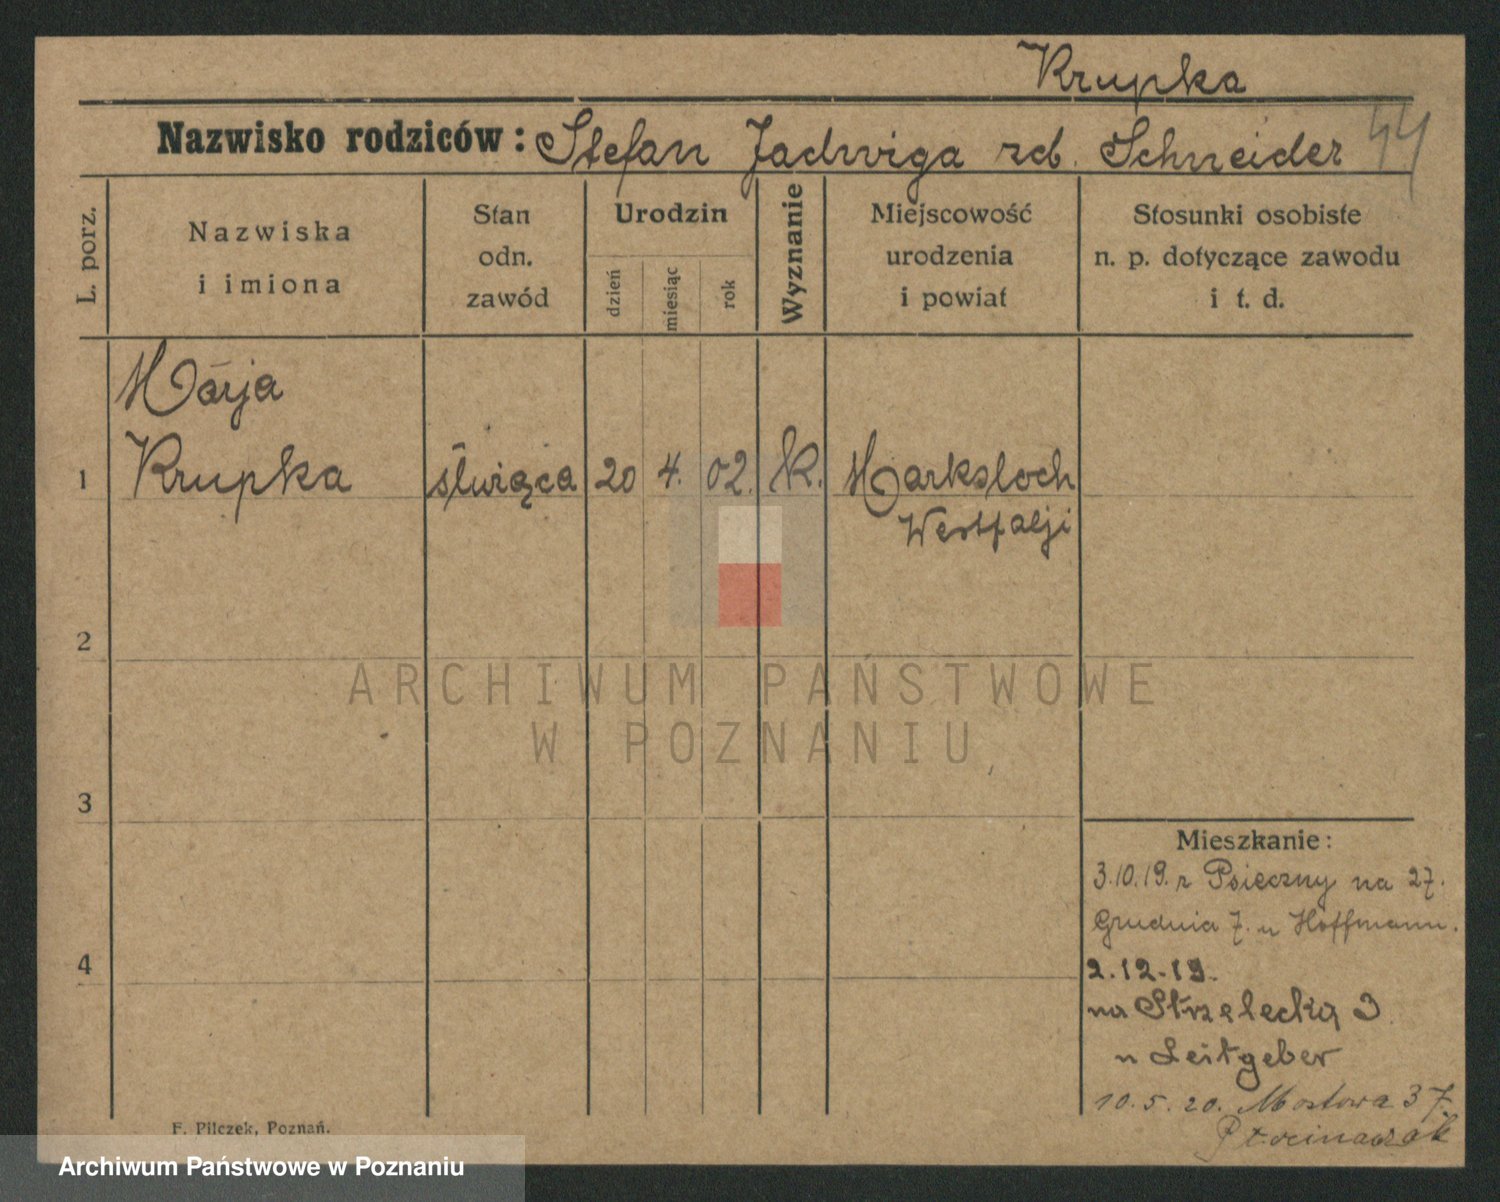 Krupka
Nazwisko rodziców: Stefan Jadwiga rd. Schneider 44
L. porz.
Nazwiska
i imiona
Stan
odn.
zawód
Urodzin
dzień
miesiąc
rok
Wyznanie
Miejscowość
urodzenia
i powiat
Stosunki osobiste
n. p. dotyczące zawodu
i t. d.
Marja
1 Krupka służąca 20 4. 02. K. Marksloch
Westfalji
2
ARCHIWUM PAŃSTWOWE
W POZNANIU
3
Mieszkanie:
3.10.19. z Psieczny na 27.
Grudnia 7. u Hoffmann.
4
2.12.19.
na Strzelecką 3
u Leitgeber
10.5.20. Mostowa 37.
Ptocinaczak
F. Pilczek, Poznań.
Archiwum Państwowe w Poznaniu